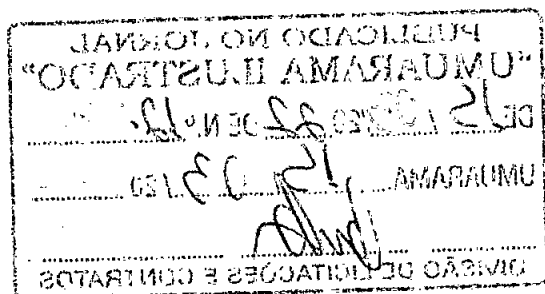 PUBLICADO NO JORNAL
"UMUARAMA ILUSTRADO"
DE 15 / /20 22 DE N.º 12.
UMUARAMA 15 03 /20
DIVISÃO DE LICITAÇÕES E CONTRATOS